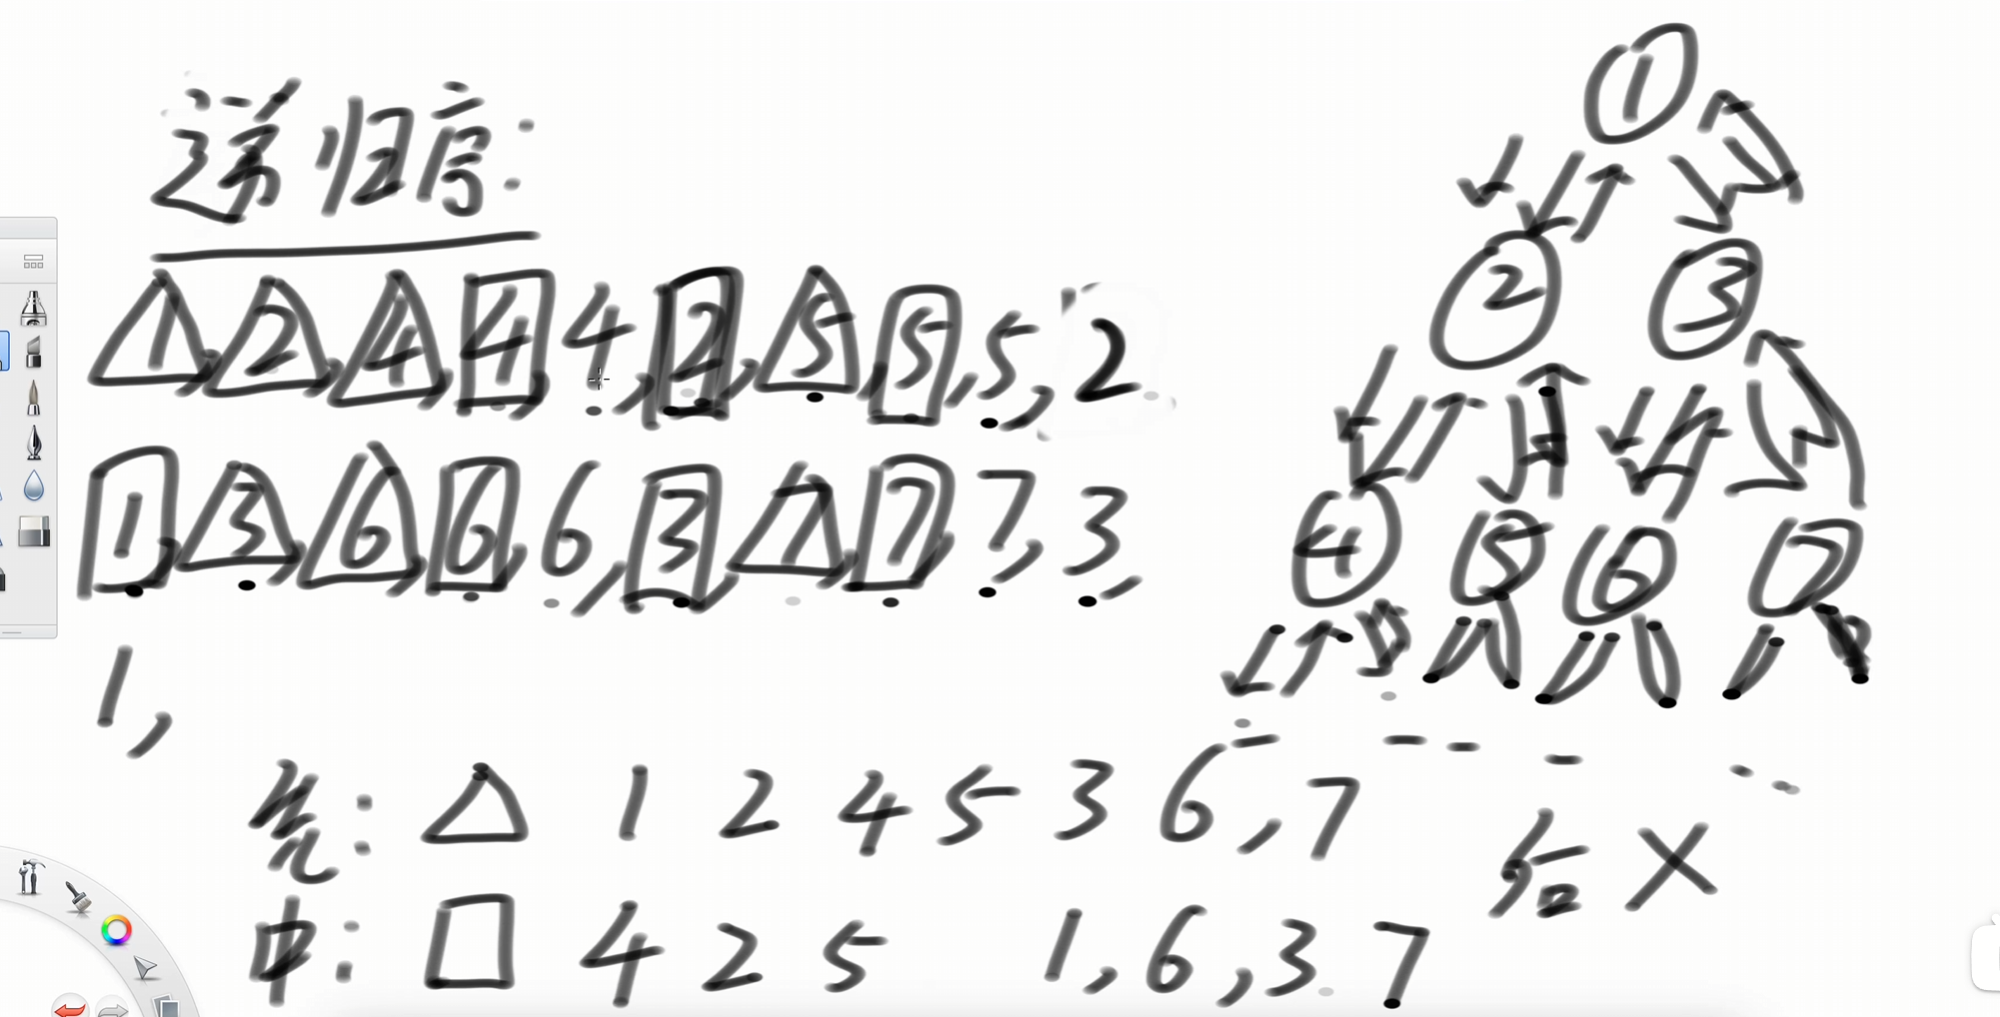 递归序:
1,2,4,4,4,2,5,5,5,2
1,3,6,6,6,3,7,7,7,3,
1,
先: △ 1 2 4 5 3 6,7
中: □ 4 2 5 1,6,3 7
后 X
1
2 3
4 5 6 7